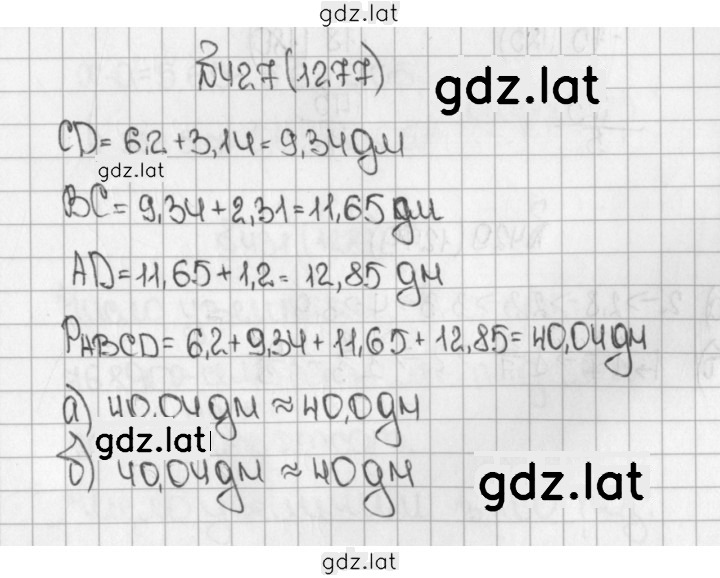 gdz.lat
№427(1277)
gdz.lat
CD = 6,2 + 3,14 = 9,34 дм
gdz.lat
BC = 9,34 + 2,31 = 11,65 дм
AD = 11,65 + 1,2 = 12,85 дм
PABCD = 6,2 + 9,34 + 11,65 + 12,85 = 40,04 дм
а) 40,04 дм ≈ 40,0 дм
gdz.lat
б) 40,04 дм ≈ 40 дм
gdz.lat
gdz.lat